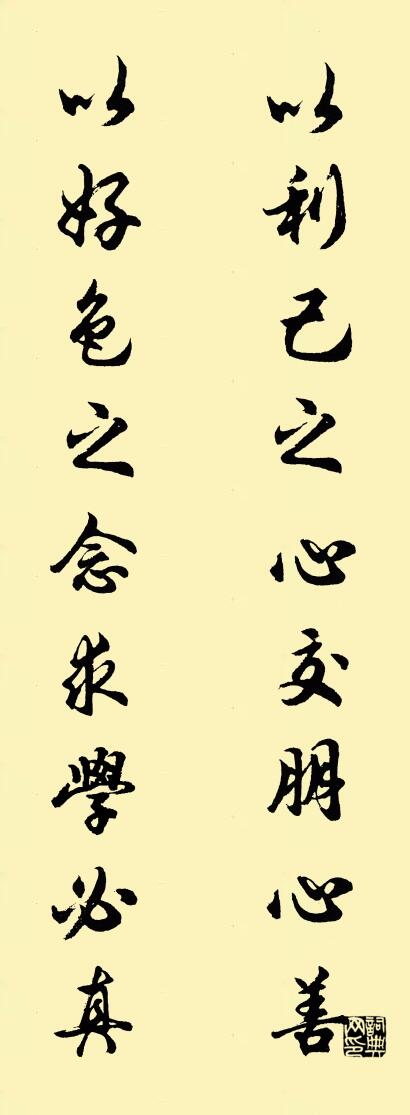 以利己之心交朋心善
以好色之念求學必真
詞典网印